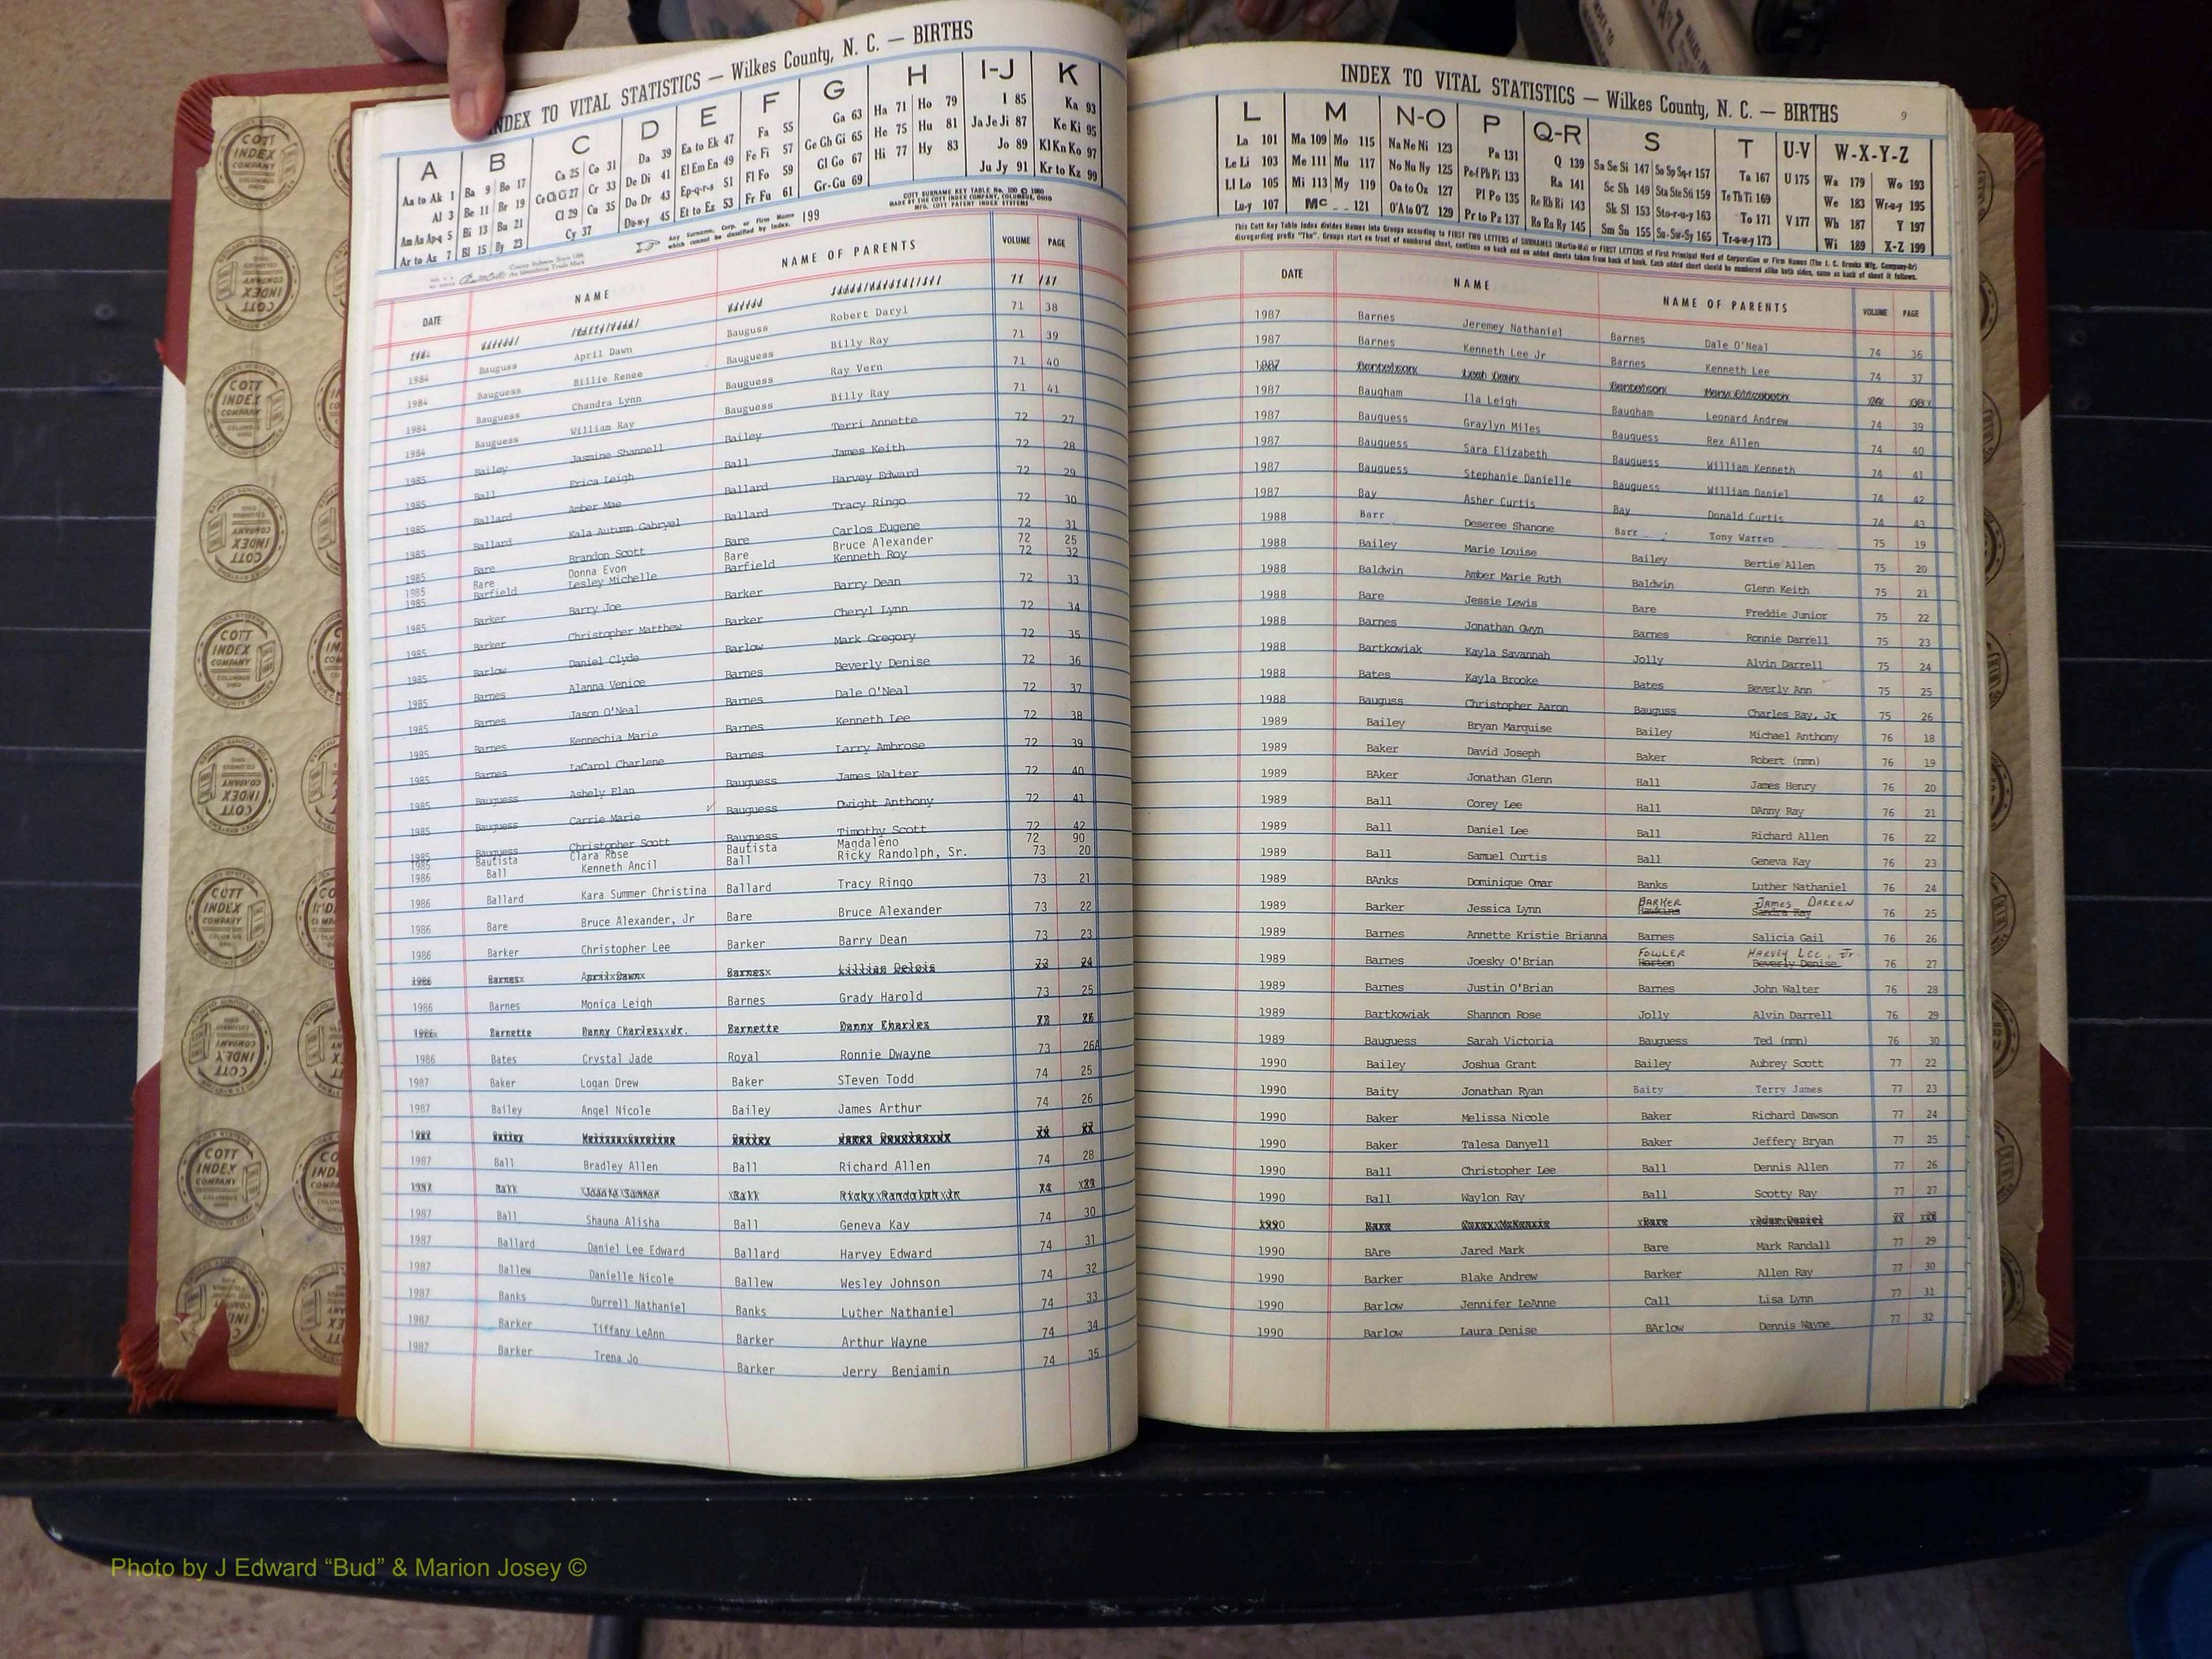 INDEX TO VITAL STATISTICS — Wilkes County, N. C. — BIRTHS
A B C D E F G H I-J K
Aa to Ak 1 Ba 9 Bo 17 Ca 25 Co 31 Da 39 Ea to Ek 47 Fa 55 Ga 63 Ha 71 Ho 79 I 85 Ka 93
Al 3 Be 11 Br 19 Ce Ch Ci 27 Cr 33 De Di 41 El Em En 49 Fe Fi 57 Ge Gh Gi 65 He 75 Hu 81 Ja Je Ji 87 Ke Ki 95
Am An Ap-q 5 Bi 13 Bu 21 Cl 29 Cu 35 Do Dr 43 Ep-q-r-s 51 Fl Fo 59 Gl Go 67 Hi 77 Hy 83 Jo 89 Kl Kn Ko 97
Ar to Az 7 Bl 15 By 23 Cy 37 Du-w-y 45 Et to Ez 53 Fr Fu 61 Gr-Gu 69 Ju Jy 91 Kr to Kz 99
Any Surname, Corp. or Firm Name which cannot be classified by Index. 199
COTT SURNAME KEY TABLE No. 100 © 1960
MADE BY THE COTT INDEX COMPANY, COLUMBUS, OHIO
MFG. COTT PATENT INDEX SYSTEMS
DATE NAME NAME OF PARENTS VOLUME PAGE
1984 Bauguss April Dawn Bauguss Robert Daryl 71 38
1984 Bauguess Billie Renee Bauguess Billy Ray 71 39
1984 Bauguess Chandra Lynn Bauguess Ray Vern 71 40
1984 Bauguess William Ray Bauguess Billy Ray 71 41
1985 Bailey Jasmine Shannell Bailey Terri Annette 72 27
1985 Ball Erica Leigh Ball James Keith 72 28
1985 Ballard Amber Mae Ballard Harvey Edward 72 29
1985 Ballard Kala Autumn Gabryel Ballard Tracy Ringo 72 30
1985 Bare Brandon Scott Bare Carlos Eugene 72 31
1985 Bare Donna Evon Bare Bruce Alexander 72 25
1985 Barfield Lesley Michelle Barfield Kenneth Roy 72 32
1985 Barker Barry Joe Barker Barry Dean 72 33
1985 Barker Christopher Matthew Barker Cheryl Lynn 72 34
1985 Barlow Daniel Clyde Barlow Mark Gregory 72 35
1985 Barnes Alanna Venice Barnes Beverly Denise 72 36
1985 Barnes Jason O'Neal Barnes Dale O'Neal 72 37
1985 Barnes Kennechia Marie Barnes Kenneth Lee 72 38
1985 Barnes LaCarol Charlene Barnes Larry Ambrose 72 39
1985 Bauguess Ashely Elan Bauguess James Walter 72 40
1985 Bauguess Carrie Marie Bauguess Dwight Anthony 72 41
1985 Bauguess Christopher Scott Bauguess Timothy Scott 72 42
1985 Bautista Clara Rose Bautista Magdaleno 72 90
1986 Ball Kenneth Ancil Ball Ricky Randolph, Sr. 73 20
1986 Ballard Kara Summer Christina Ballard Tracy Ringo 73 21
1986 Bare Bruce Alexander, Jr Bare Bruce Alexander 73 22
1986 Barker Christopher Lee Barker Barry Dean 73 23
1986 Barnes April Dawn Barnes Lillian Delois 73 24
1986 Barnes Monica Leigh Barnes Grady Harold 73 25
1986 Barnette Danny Charles Jr. Barnette Danny Charles
1986 Bates Crystal Jade Royal Ronnie Dwayne 73 26A
1987 Baker Logan Drew Baker STeven Todd 74 25
1987 Bailey Angel Nicole Bailey James Arthur 74 26
1987 Ball Bradley Allen Ball Richard Allen 74 28
1987 Ball Shauna Alisha Ball Geneva Kay 74 30
1987 Ballard Daniel Lee Edward Ballard Harvey Edward 74 31
1987 Ballew Danielle Nicole Ballew Wesley Johnson 74 32
1987 Banks Durrell Nathaniel Banks Luther Nathaniel 74 33
1987 Barker Tiffany LeAnn Barker Arthur Wayne 74 34
1987 Barker Trena Jo Barker Jerry Benjamin 74 35
INDEX TO VITAL STATISTICS — Wilkes County, N. C. — BIRTHS 9
L M N-O P Q-R S T U-V W-X-Y-Z
La 101 Ma 109 Mo 115 Na Ne Ni 123 Pa 131 Q 139 Sa Se Si 147 So Sp Sq-r 157 Ta 167 U 175 Wa 179 Wo 193
Le Li 103 Me 111 Mu 117 No Nu Ny 125 Pe-f Ph Pi 133 Ra 141 Sc Sh 149 Sta Ste Sti 159 Te Th Ti 169 We 183 Wr-u-y 195
Ll Lo 105 Mi 113 My 119 Oa to Oz 127 Pl Po 135 Re Rh Ri 143 Sk Sl 153 Sto-r-u-y 163 To 171 V 177 Wh 187 Y 197
Lu-y 107 Mc 121 O'A to O'Z 129 Pr to Pz 137 Ro Ru Ry 145 Sm Sn 155 Su-Sw-Sy 165 Tr-u-w-y 173 Wi 189 X-Z 199
This Cott Key Table Index divides Names into Groups according to FIRST TWO LETTERS of SURNAMES (Martin-Ma) or FIRST LETTERS of First Principal Word of Corporation or Firm Names (The L. C. Brooks Mfg. Company-Br)
disregarding prefix "The". Groups start on front of numbered sheet, continue on back and on added sheets taken from back of book. Each added sheet should be numbered alike both sides, same as back of sheet it follows.
DATE NAME NAME OF PARENTS VOLUME PAGE
1987 Barnes Jeremey Nathaniel Barnes Dale O'Neal 74 36
1987 Barnes Kenneth Lee Jr Barnes Kenneth Lee 74 37
1987 Baugham Ila Leigh Baugham Leonard Andrew 74 39
1987 Bauguess Graylyn Miles Bauguess Rex Allen 74 40
1987 Bauguess Sara Elizabeth Bauguess William Kenneth 74 41
1987 Bauguess Stephanie Danielle Bauguess William Daniel 74 42
1987 Bay Asher Curtis Bay Donald Curtis 74 43
1988 Barr Deseree Shanone Barr Tony Warren 75 19
1988 Bailey Marie Louise Bailey Bertie Allen 75 20
1988 Baldwin Amber Marie Ruth Baldwin Glenn Keith 75 21
1988 Bare Jessie Lewis Bare Freddie Junior 75 22
1988 Barnes Jonathan Gwyn Barnes Ronnie Darrell 75 23
1988 Bartkowiak Kayla Savannah Jolly Alvin Darrell 75 24
1988 Bates Kayla Brooke Bates Beverly Ann 75 25
1988 Bauguss Christopher Aaron Bauguss Charles Ray, Jr 75 26
1989 Bailey Bryan Marquise Bailey Michael Anthony 76 18
1989 Baker David Joseph Baker Robert (nmn) 76 19
1989 BAker Jonathan Glenn Hall James Henry 76 20
1989 Ball Corey Lee Hall DAnny Ray 76 21
1989 Ball Daniel Lee Ball Richard Allen 76 22
1989 Ball Samuel Curtis Ball Geneva Kay 76 23
1989 BAnks Dominique Omar Banks Luther Nathaniel 76 24
BARKER JAMES DARREN
1989 Barker Jessica Lynn Hawkins Sandra Kay 76 25
1989 Barnes Annette Kristie Brianna Barnes Salicia Gail 76 26
FOWLER HARVEY LEE, Jr
1989 Barnes Joesky O'Brian Horton Beverly Denise 76 27
1989 Barnes Justin O'Brian Barnes John Walter 76 28
1989 Bartkowiak Shannon Rose Jolly Alvin Darrell 76 29
1989 Bauguess Sarah Victoria Bauguess Ted (nmn) 76 30
1990 Bailey Joshua Grant Bailey Aubrey Scott 77 22
1990 Baity Jonathan Ryan Baity Terry James 77 23
1990 Baker Melissa Nicole Baker Richard Dawson 77 24
1990 Baker Talesa Danyell Baker Jeffery Bryan 77 25
1990 Ball Christopher Lee Ball Dennis Allen 77 26
1990 Ball Waylon Ray Ball Scotty Ray 77 27
1990 Bare Adam Daniel
1990 BAre Jared Mark Bare Mark Randall 77 29
1990 Barker Blake Andrew Barker Allen Ray 77 30
1990 Barlow Jennifer LeAnne Call Lisa Lynn 77 31
1990 Barlow Laura Denise BArlow Dennis Wayne 77 32
COTT INDEX COMPANY
Photo by J Edward “Bud” & Marion Josey ©